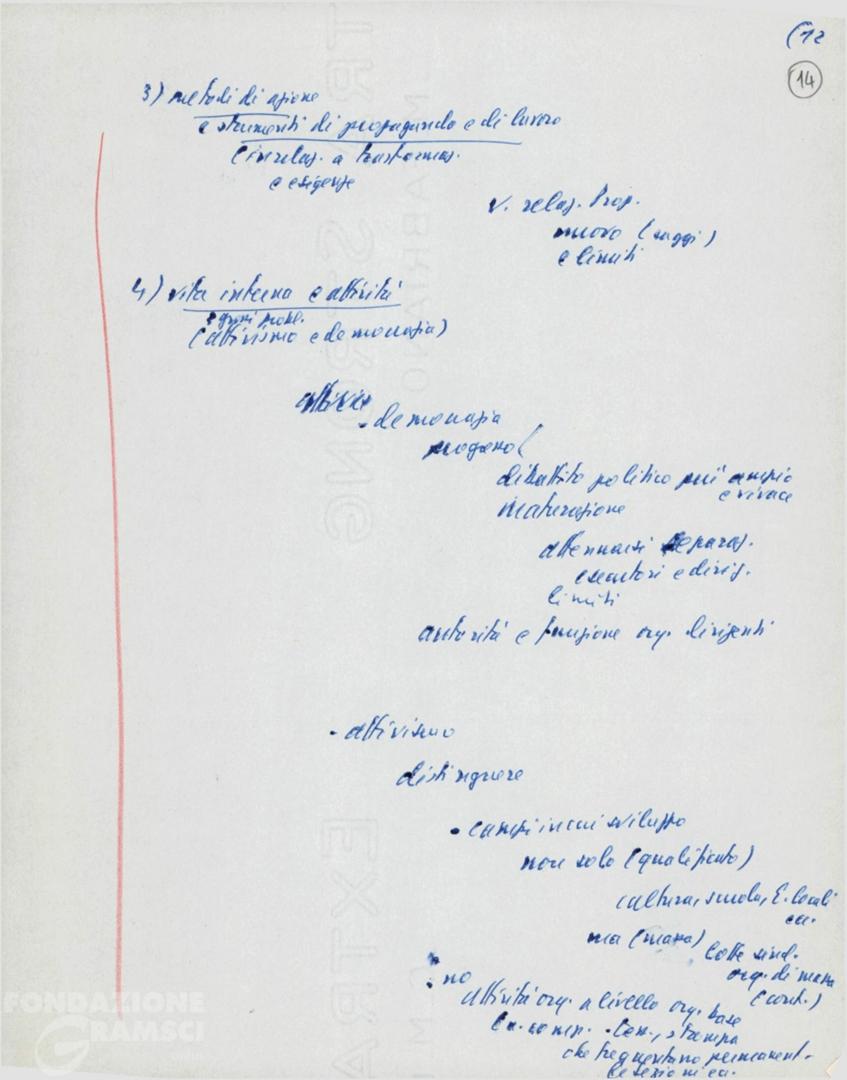 (12
14
3) metodi di azione
e strumenti di propaganda e di lavoro
(in relaz. a trasformaz.
e esigenze
v. relaz. Prop.
nuovo (saggi)
e limiti
4) vita interna e attività
(attivismo e democrazia)
- democrazia
progresso (
dibattito politico più ampio
e vivace
maturazione
attenuarsi separaz.
esecutori e dirig.
limiti
autorità e funzione org. dirigenti
- attivismo
distinguere
- campi in cui sviluppo
non solo (qualificato)
cultura, scuola, E. locali
ecc.
ma (massa) lotte sind.
org. di massa
(cont.)
: no
attività org. a livello org. base
tess., stampa
che frequentano permanent.
le sezioni ecc.
FONDAZIONE
GRAMSCI
EXTRA STRONG
FABRIANO
EXTRA